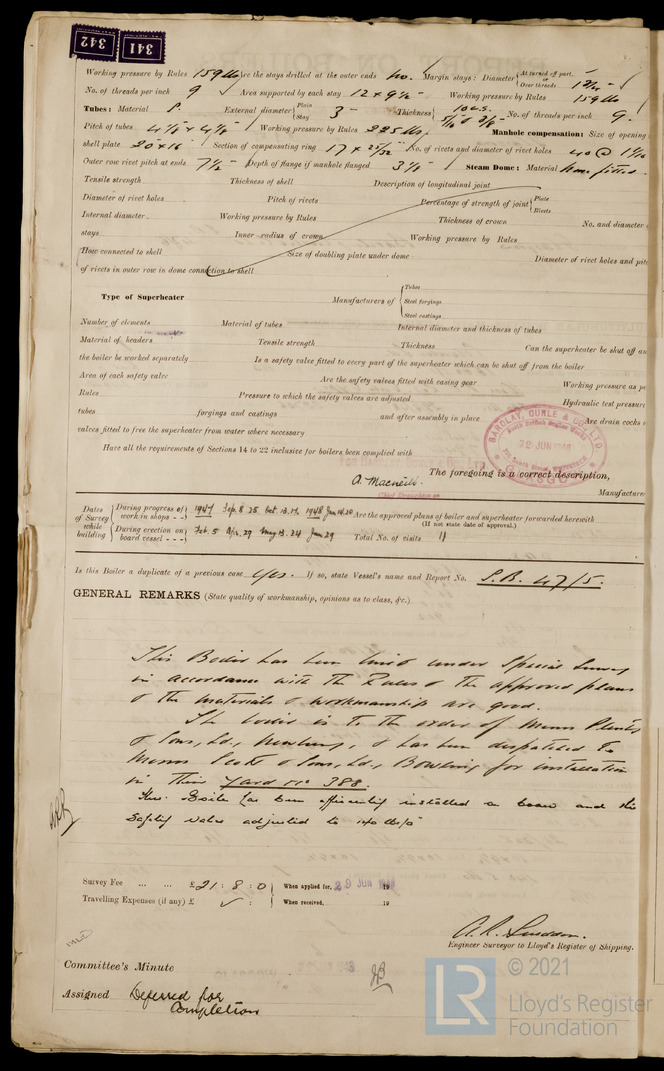 342 341
Working pressure by Rules 159 lbs Are the stays drilled at the outer ends No. Margin stays: Diameter { At turned off part, Over threads 1 3/4"
No. of threads per inch 9 Area supported by each stay 12 × 9 1/2" Working pressure by Rules 159 lbs
Tubes: Material S. External diameter { Plain Stay 3" Thickness { 10 W.G. 5/16 & 3/8" No. of threads per inch 9.
Pitch of tubes 4 1/8 × 4 1/8" Working pressure by Rules 225 lbs Manhole compensation: Size of opening
shell plate 20 × 16 Section of compensating ring 17 × 25/32" No. of rivets and diameter of rivet holes 40 @ 1 1/16
Outer row rivet pitch at ends 7 1/2" Depth of flange if manhole flanged 3 1/8" Steam Dome: Material None fitted
Tensile strength Thickness of shell Description of longitudinal joint
Diameter of rivet holes Pitch of rivets Percentage of strength of joint { Plate Rivets
Internal diameter Working pressure by Rules Thickness of crown No. and diameter
stays Inner radius of crown Working pressure by Rules
How connected to shell Size of doubling plate under dome Diameter of rivet holes and pitc
of rivets in outer row in dome connection to shell
Type of Superheater Manufacturers of { Tubes Steel forgings Steel castings
Number of elements Material of tubes Internal diameter and thickness of tubes
Material of headers Tensile strength Thickness Can the superheater be shut off an
the boiler be worked separately Is a safety valve fitted to every part of the superheater which can be shut off from the boiler
Area of each safety valve Are the safety valves fitted with easing gear Working pressure as pe
Rules Pressure to which the safety valves are adjusted Hydraulic test pressure
tubes forgings and castings and after assembly in place Are drain cocks o
valves fitted to free the superheater from water where necessary
Have all the requirements of Sections 14 to 22 inclusive for boilers been complied with
BARCLAY, CURLE & CO. LTD.
22 JUN 1948
GLASGOW
The foregoing is a correct description,
A. Macneill. Manufacturer
Dates of Survey while building { During progress of work in shops - - 1947 Sep. 8 25 Oct. 13. 17 1948 Jan 14. 20 Are the approved plans of boiler and superheater forwarded herewith
(If not state date of approval.)
During erection on board vessel - - - Feb. 5 Apr. 29 May 13. 24 Jun 29 Total No. of visits 11
Is this Boiler a duplicate of a previous case Yes. If so, state Vessel's name and Report No. S.B. 47/5.
GENERAL REMARKS (State quality of workmanship, opinions as to class, &c.)
This Boiler has been built under Special Survey
in accordance with the Rules & the approved plans
& the materials & workmanship are good.
The boiler is to the order of Messrs Plenty
& Sons, Ld., Newbury, & has been despatched to
Messrs Scott & Sons, Ld., Bowling, for installation
in their Yard No. 388.
This Boiler has been efficiently installed on board and the
Safety valves adjusted to 140 lbs/□"
Survey Fee ... ... £21 : 8 : 0 When applied for, 29 JUN 19
Travelling Expenses (if any) £ : : When received, 19
Engineer Surveyor to Lloyd's Register of Shipping.
Committee's Minute
Assigned Deferred for
Completion
LR © 2021
Lloyd's Register
Foundation